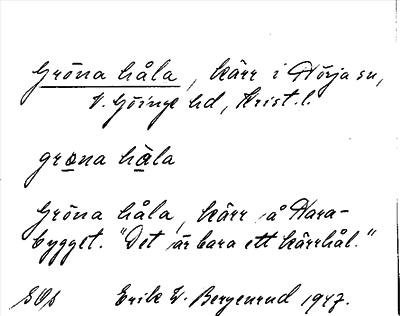 Gröna håla, kärr i Nörja sn,
V. Göinge hd, Krist. l.
grona hàla
Gröna håla, kärr å Nara-
bygget. "Det är bara ett kärrhål."
Erik W. Bergenrud 1947.